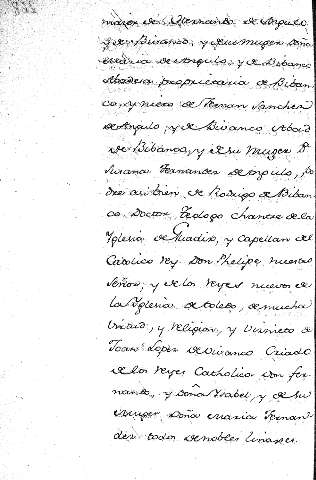 mayor de Hernando de Angulo
y de Bibanco, y de su muger Doña
Maria de Angulo, y de Bibanco
Abadesa propietaria de Biban-
co, y nieto de Fernan Sanchez
de Angulo, y de Bibanco Abad
de Bibanco, y de su Muger D.ª
Susana Fernandez de Angulo, po-
dre asi bien de Rodrigo de Biban-
co Doctor Teologo Chantre de la
Yglesia de Guadix, y Capellan del
Catolico Rey Don Phelipe nuestro
Señor, y de los Reyes nuevos de
la Yglesia de toledo, de mucha
Virtud, y Religion, y Viznieto de
Joan Lopez de Vivanco Criado
de los Reyes Catholicos don fer-
nando, y doña Ysabel, y de su
Muger Doña Maria Fernan-
dez todos de nobles linages.